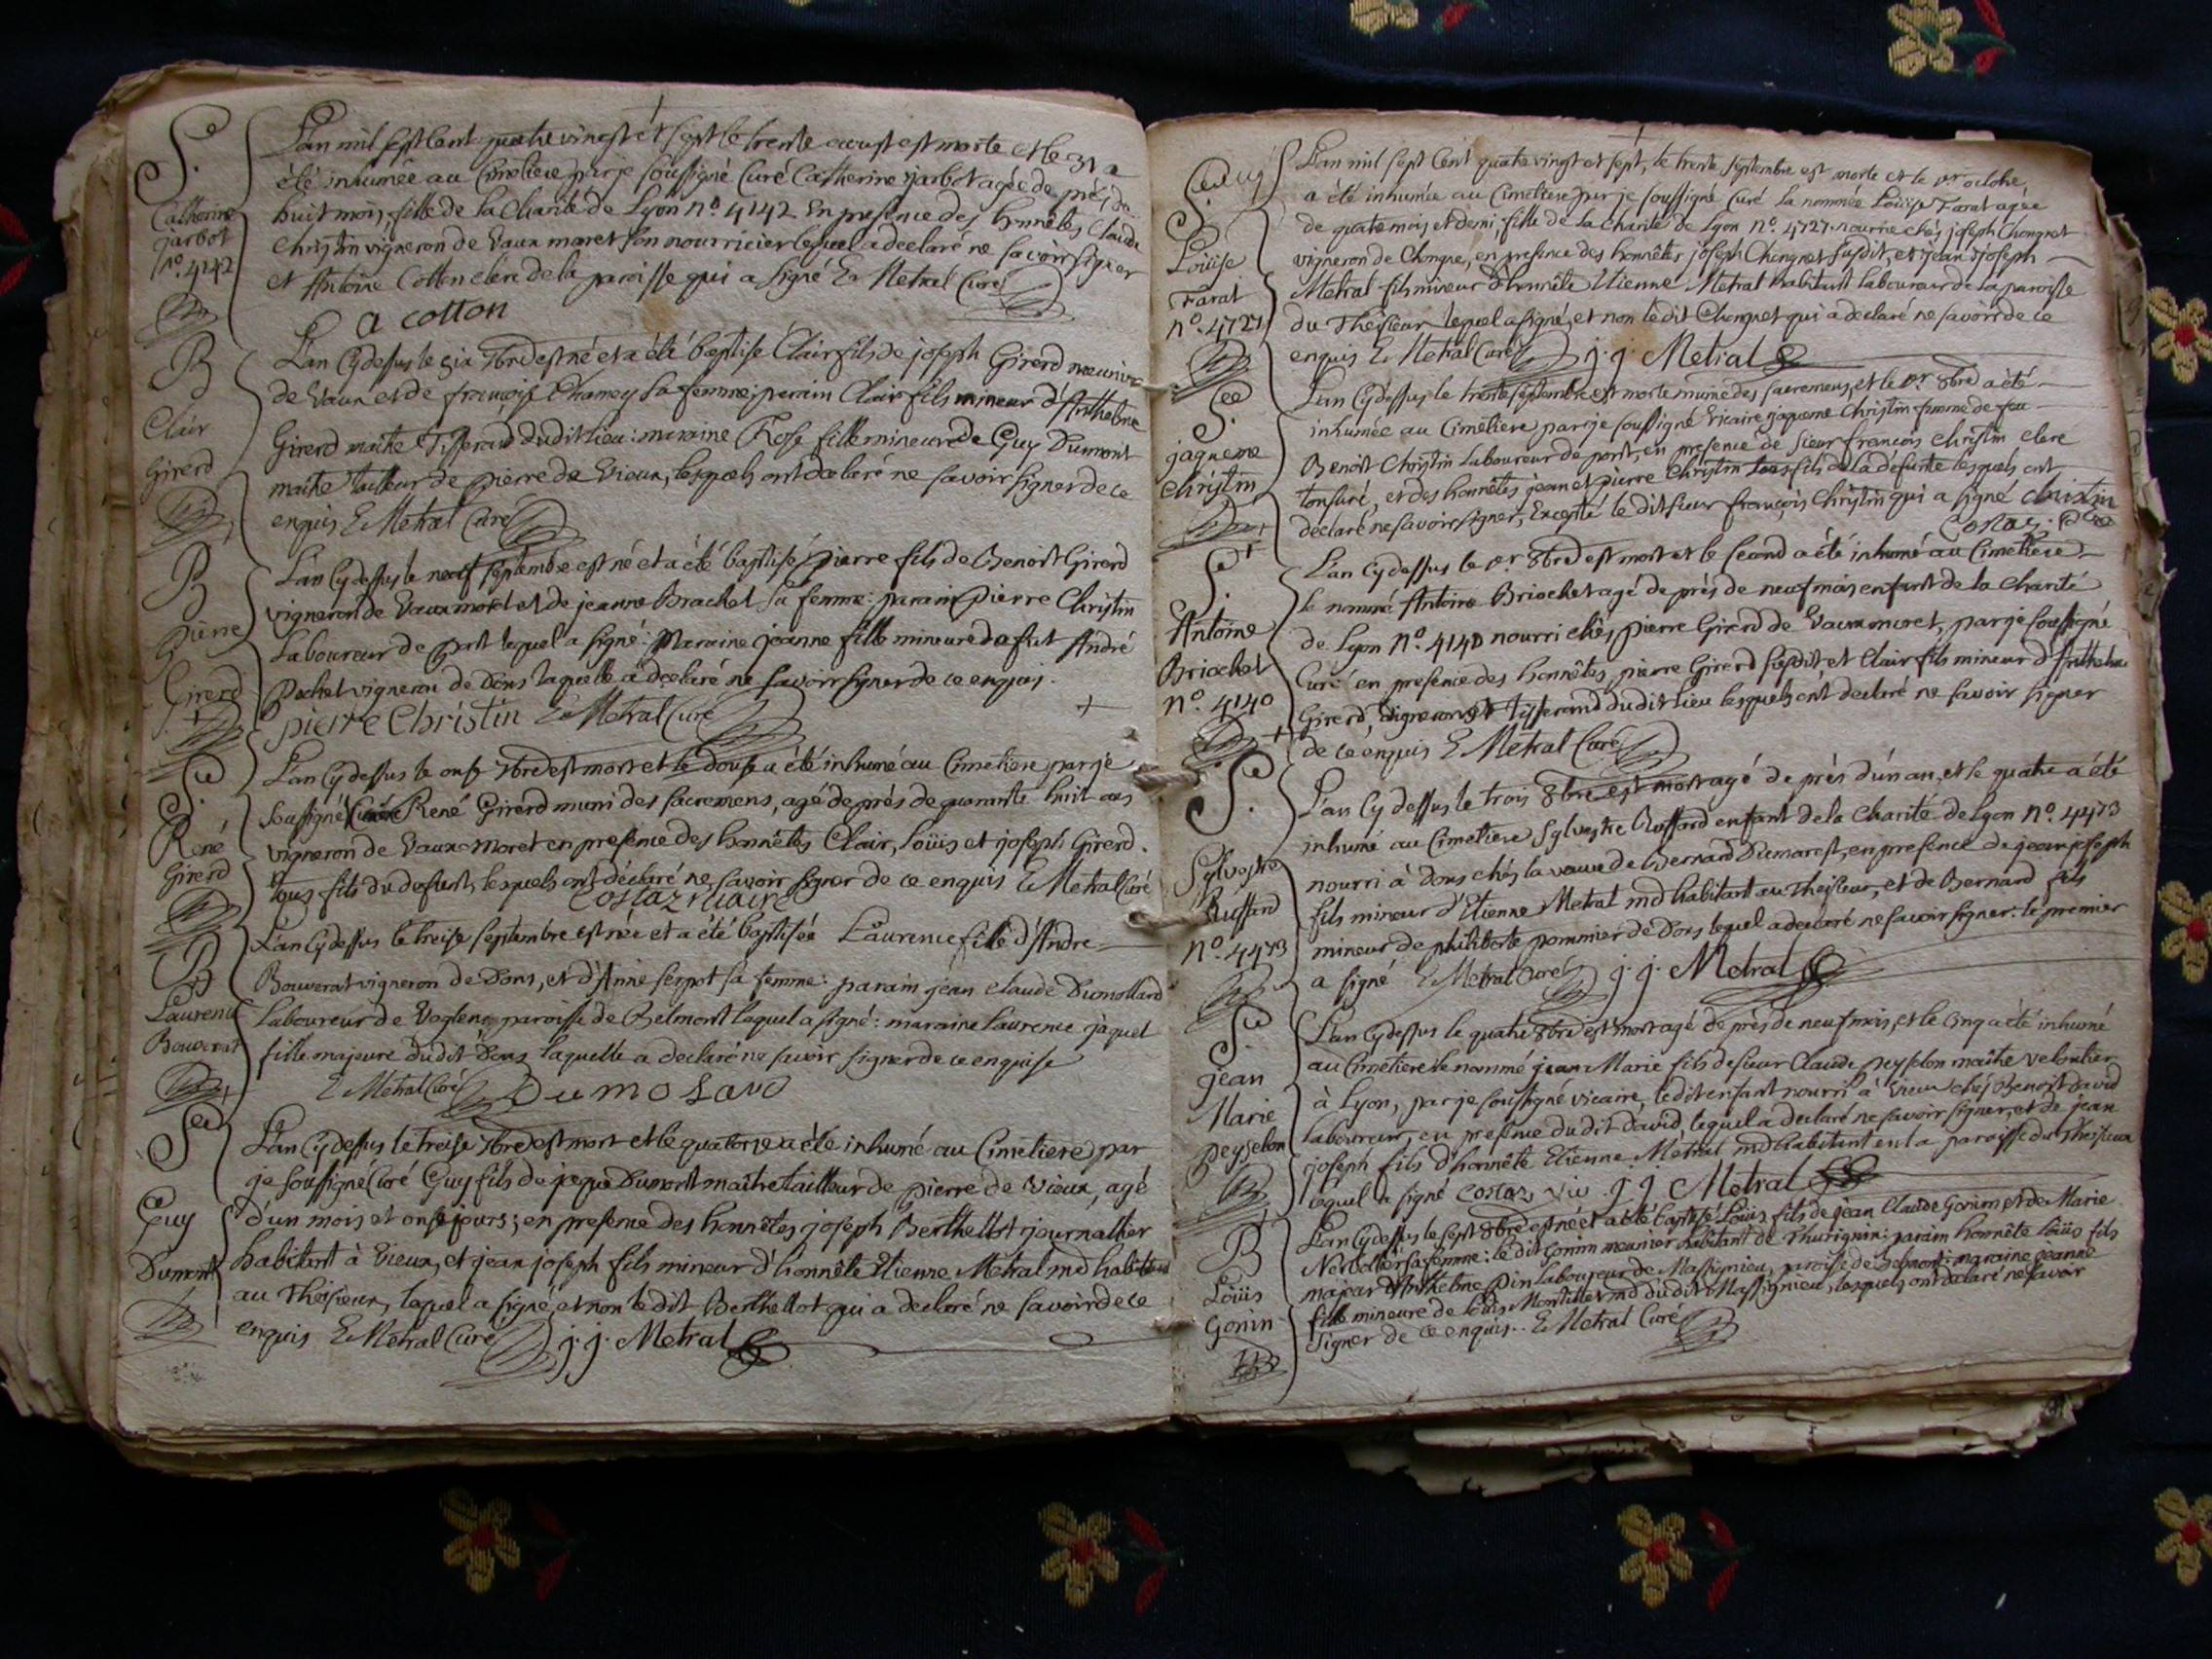 S.re
Catherine
jarbot
n.o 4142
L'an mil sept cent quatre vingt et sept le trente aoust est morte et le 31 a
été inhumée au Cimetiere par je soussigné Curé Catherine jarbot agée de près de
huit mois, fille de la Charité de Lyon n.o 4142 En presence des honnêtes Claude
Christin vigneron de Vaux moret son nourricier lequel a declaré ne savoir signer
et Antoine Cotton clerc de la paroisse qui a signé E Metral Curé
a cotton
B
Clair
Girerd
L'an Cy dessus le six 7bre est né et a été baptisé Clair fils de joseph Girerd meunier
de Vaux et de françoise Chamey sa femme; parain Clair fils mineur d'Anthelme
Girerd maitre Tisserand dudit lieu: maraine Rose fille mineure de Guy Dumont
maitre tailleur de pierre de Vieux, lesquels ont declaré ne savoir signer de ce
enquis E Metral Curé
B
pierre
Girerd
L'an Cy dessus le neuf septembre est né et a été baptisé pierre fils de Benoit Girerd
vigneron de Vaux moret et de jeanne Brachet sa femme: parain pierre Christin
Laboureur de pont lequel a signé: Maraine jeanne fille mineure de fut André
Pochet vigneron de Dons laquelle a declaré ne savoir signer de ce enquis.
pierre Christin E Metral Curé
S.re
René
Girerd
L'an Cy dessus le onze 7bre est mort et le douze a été inhumé au Cimetiere par je
soussigné René Girerd muni des sacremens, agé de près de quarante huit ans
vigneron de Vaux-moret en presence des honnêtes Clair, Loüis et joseph Girerd
tous fils du defunt, lesquels ont déclaré ne savoir signer de ce enquis E Metral Curé
Costaz vicaire
B
Laurence
Bouverat
L'an Cy dessus le treize septembre est née et a été baptisée Laurence fille d'Andre
Bouverat vigneron de Dons, et d'Anne serpot sa femme: parain jean claude Dumollard
Laboureur de Voglens paroisse de Belmont lequel a signé: maraine laurence jaquet
fille majeure dudit Dons laquelle a declaré ne savoir signer de ce enquise
E Metral Curé Dumolard
S.re
Guy
Dumont
L'an Cy dessus le treize 7bre est mort et le quatorze a été inhumé au Cimetiere par
je soussigné Curé Guy fils de Dumont maître tailleur de pierre de Vieux, agé
d'un mois et onze jours; en presence des honnêtes joseph Berthellot journallier
habitant à Vieux, et jean joseph fils mineur d'honnête Etienne Metral md habitant
au Theisieux, lequel a signé, et non ledit Berthellot qui a declaré ne savoir de ce
enquis E Metral Curé j.j. Metral
S.re
Loüise
Farat
n.o 4727
L'an mil sept Cent quatre vingt et sept, le trente septembre est morte et le 1er octobre,
a été inhumée au Cimetiere par je soussigné Curé la nommée Loüise Farat agée
de quatre mois et demi, fille de la Charité de Lyon n.o 4727 nourrie chés joseph Chongnet
vigneron de Chongne, en presence des honnêtes joseph Chongnet susdit, et jean joseph
Metral fils mineur d'honnête Etienne Metral habitant laboureur de la paroisse
du Theisieux lequel a signé, et non ledit Chongnet qui a declaré ne savoir de ce
enquis E Metral Curé j.j. Metral
S.re
jaqueme
christin
L'an Cy dessus le trente septembre est morte munie des sacremens, et le 1er 8bre a été
inhumée au Cimetiere par je soussigné Vicaire jaqueme Christin femme de feu
Benoît Christin Laboureur de pont, en presence de sieur françois christin clerc
tonsuré, et des honnêtes jean et pierre Christin tous fils de la défunte lesquels ont
declaré ne savoir signer, Excepté le dit sieur françois Christin qui a signé christin
Costaz
S.re
Antoine
Briochet
n.o 4140
L'an Cy dessus le 1er 8bre est mort et le second a été inhumé au Cimetiere
le nommé Antoine Briochet agé de près de neuf mois enfant de la Charité
de Lyon n.o 4140 nourri chés pierre Girerd de Vaux moret, par je soussigné
Curé en presence des honnêtes pierre Girerd susdit, et Clair fils mineur d'Anthelme
Girerd, vigneron et tisserand dudit lieu lesquels ont declaré ne savoir signer
de ce enquis E Metral Curé
S.re
Sylvestre
Ruffard
n.o 4473
L'an Cy dessus le trois 8bre est mort agé de près d'un an, et le quatre a été
inhumé au Cimetiere Sylvestre Ruffard enfant de la Charité de Lyon n.o 4473
nourri à Dons chés la veuve de Bernard Dumarest, en presence de jean joseph
fils mineur d'Etienne Metral md habitant au Theisieux, et de Bernard fils
mineur de philiberte pommier de Dons lequel a declaré ne savoir signer: le premier
a signé E Metral Curé j.j. Metral
S.re
jean
Marie
peysselon
L'an Cy dessus le quatre 8bre est mort agé de près de neuf mois, et le Cinq a été inhumé
au Cimetiere le nommé jean Marie fils de sieur Claude peysselon maître veloutier
à Lyon, par je soussigné vicaire, ledit enfant nourri à Vieux chez Benoit david
laboureur, en presence dudit david, lequel a declaré ne savoir signer, et de jean
joseph fils d'honnête Etienne Metral md habitant en la paroisse du Theisieux
lequel a signé Costaz vic. j.j. Metral
B
Loüis
Gonin
L'an Cy dessus le sept 8bre est né et a été baptisé Loüis fils de jean Claude Gonin et de Marie
sa femme: le dit Gonin meunier habitant de Thurignin: parain honnête Loüis fils
majeur d'Anthelme Pin laboureur de Massignieu, paroisse de Belmont: maraine jeanne
fille mineure de Loüis Montillet md dudit Massignieu, lesquels ont declaré ne savoir
signer de ce enquis. E Metral Curé